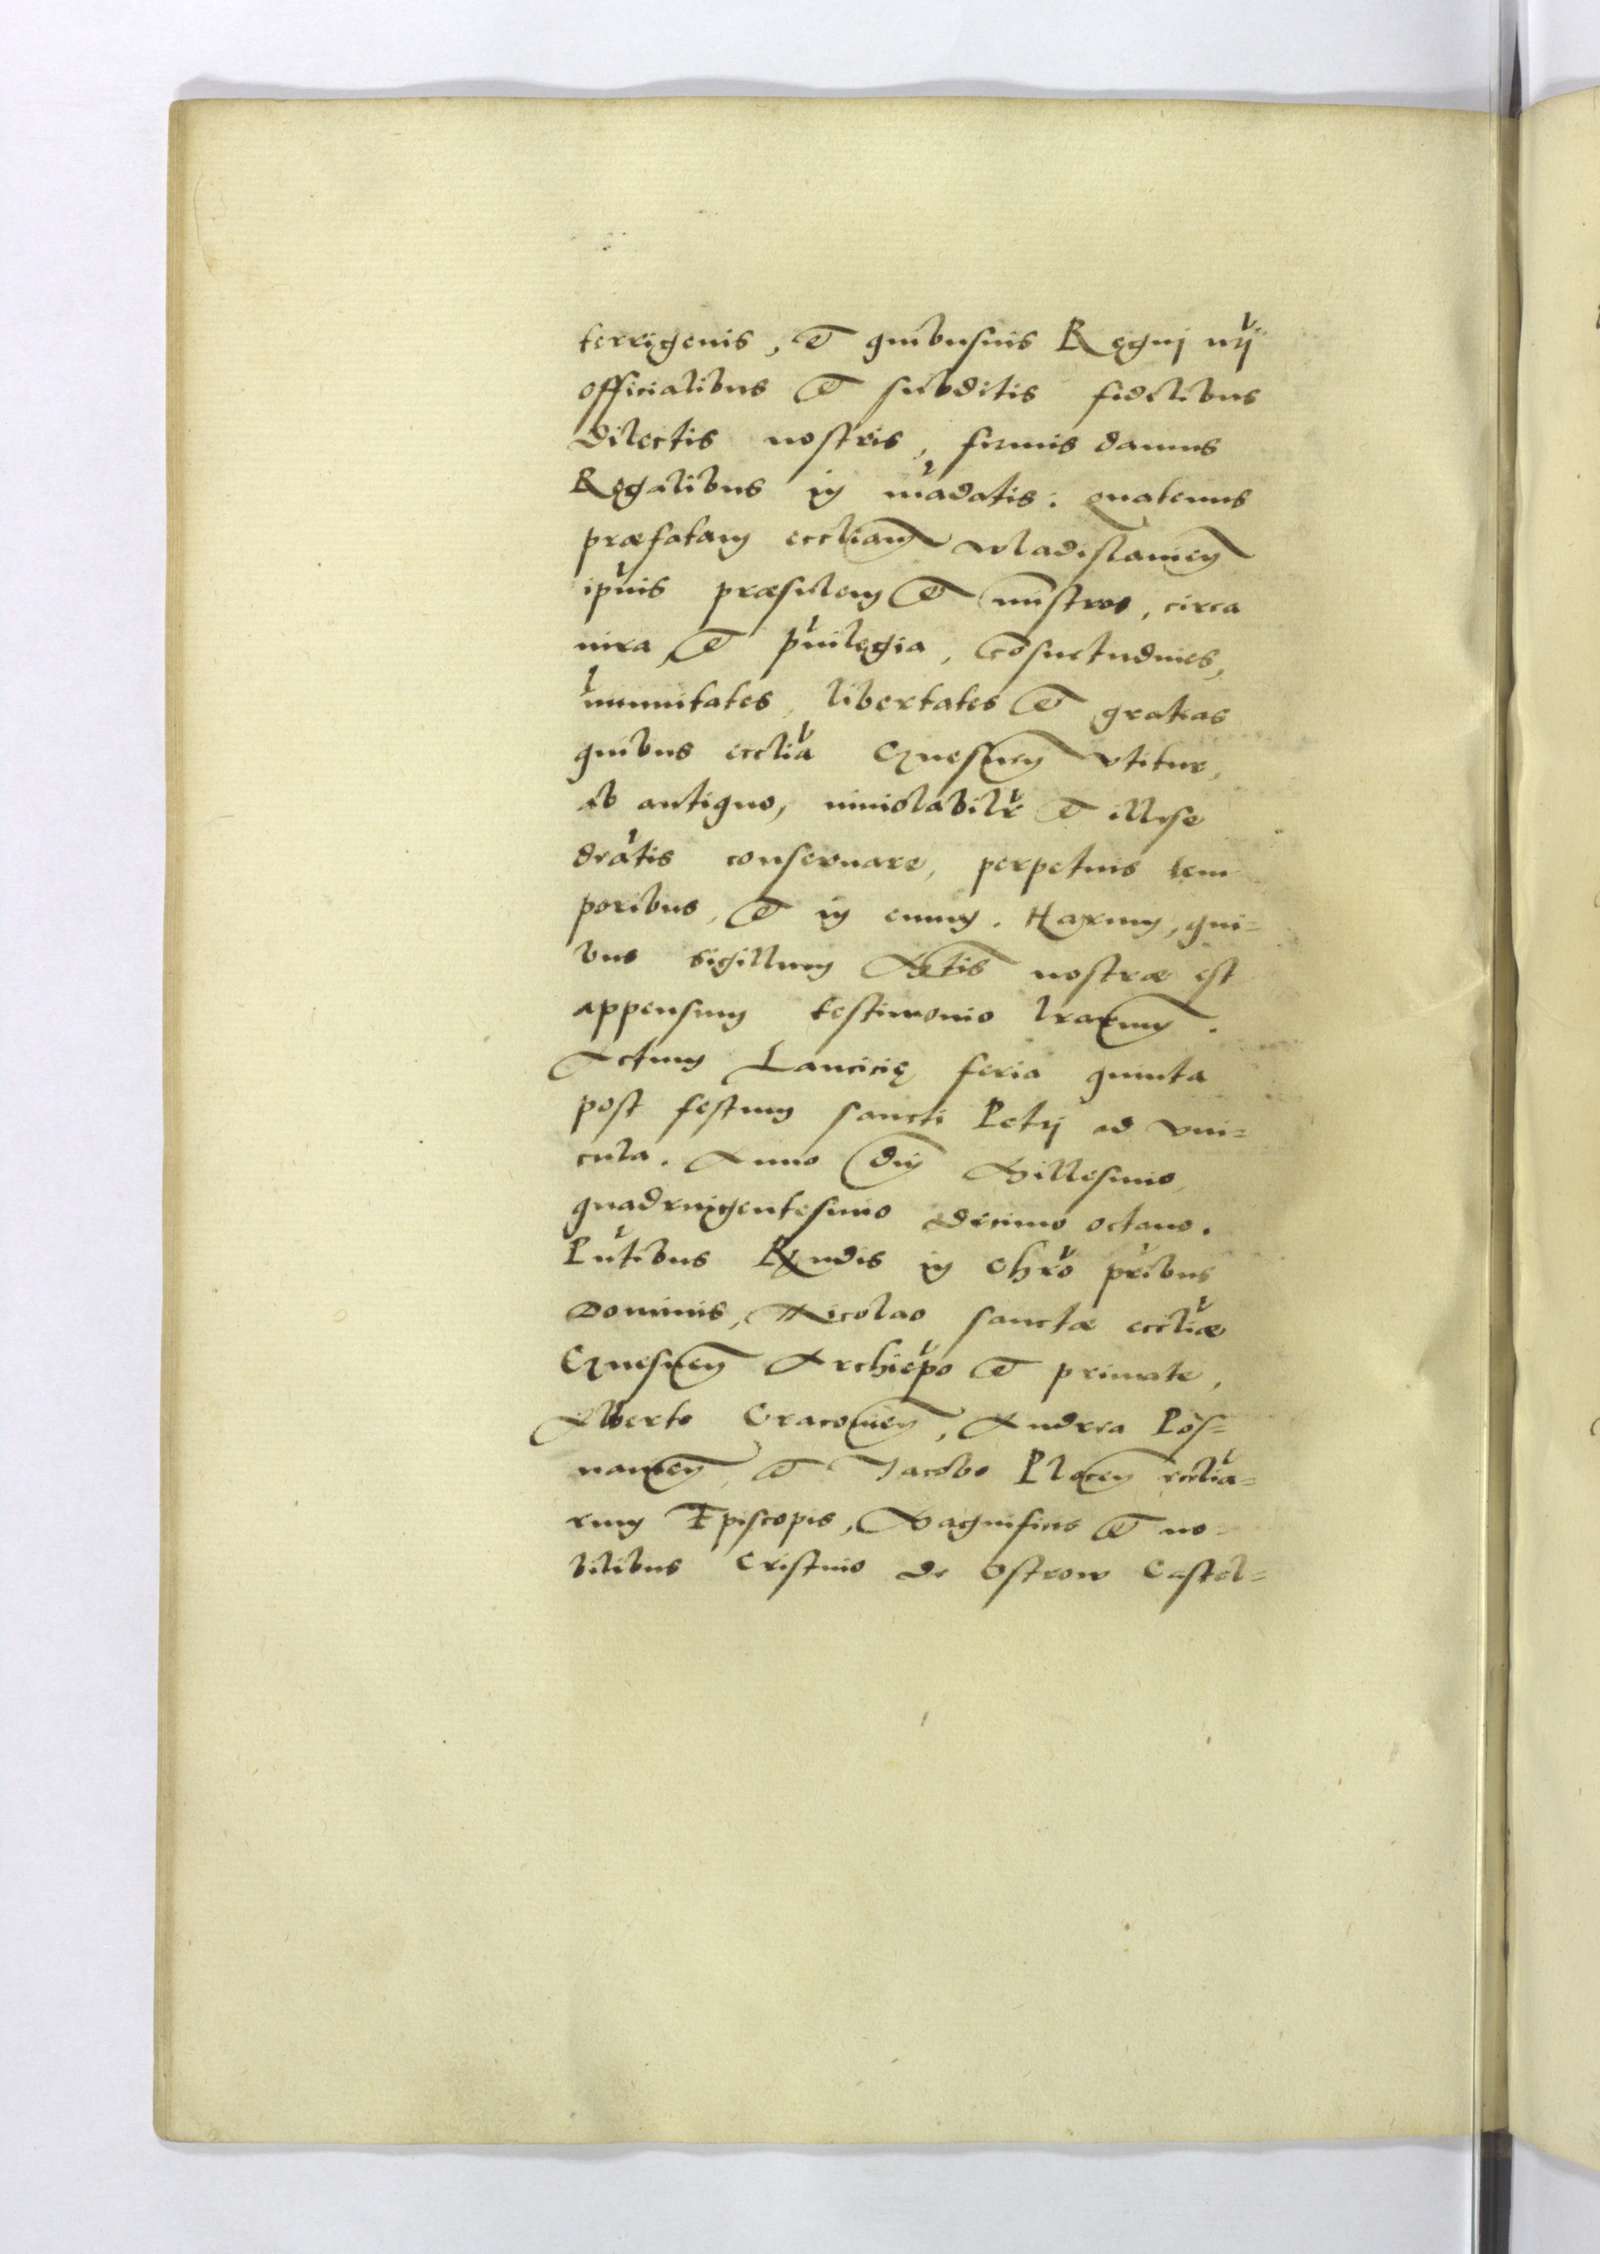 terrigenis, et quibusuis Regni nrj
officialibus et subditis fidelibus
dilectis nostris, firmis damus
Regalibus in madatis. quatenus
præfatam eccliam Wladislauien
ipius præsulem et mnstros, circa
iura et priuilegia, cosuetudines,
immunitates, libertates et gratias
quibus ecclia Gnesnen vtitur,
ab antiquo, inuiolabilr et illese
dratis conseruare, perpetuis tem
poribus, et in euum. Harum, qui-
bus sigillum Mtis nostræ est
appensum testimonio lrarum.
Actum Lancicię feria quinta
post festum sancti Petrj ad vin-
cula. Anno dni Millesimo
quadringentesimo decimo octauo.
Pntibus Rndis in Chro pribus
Dominis, Nicolao sanctæ eccliæ
Gnesnen Archiepo et primate,
Alberto Cracouien, Andrea Pos-
nanien, et Jacobo Plocen ecclia-
rum Episcopis, Magnificis et no-
bilibus Cristino de Ostrow Castel-